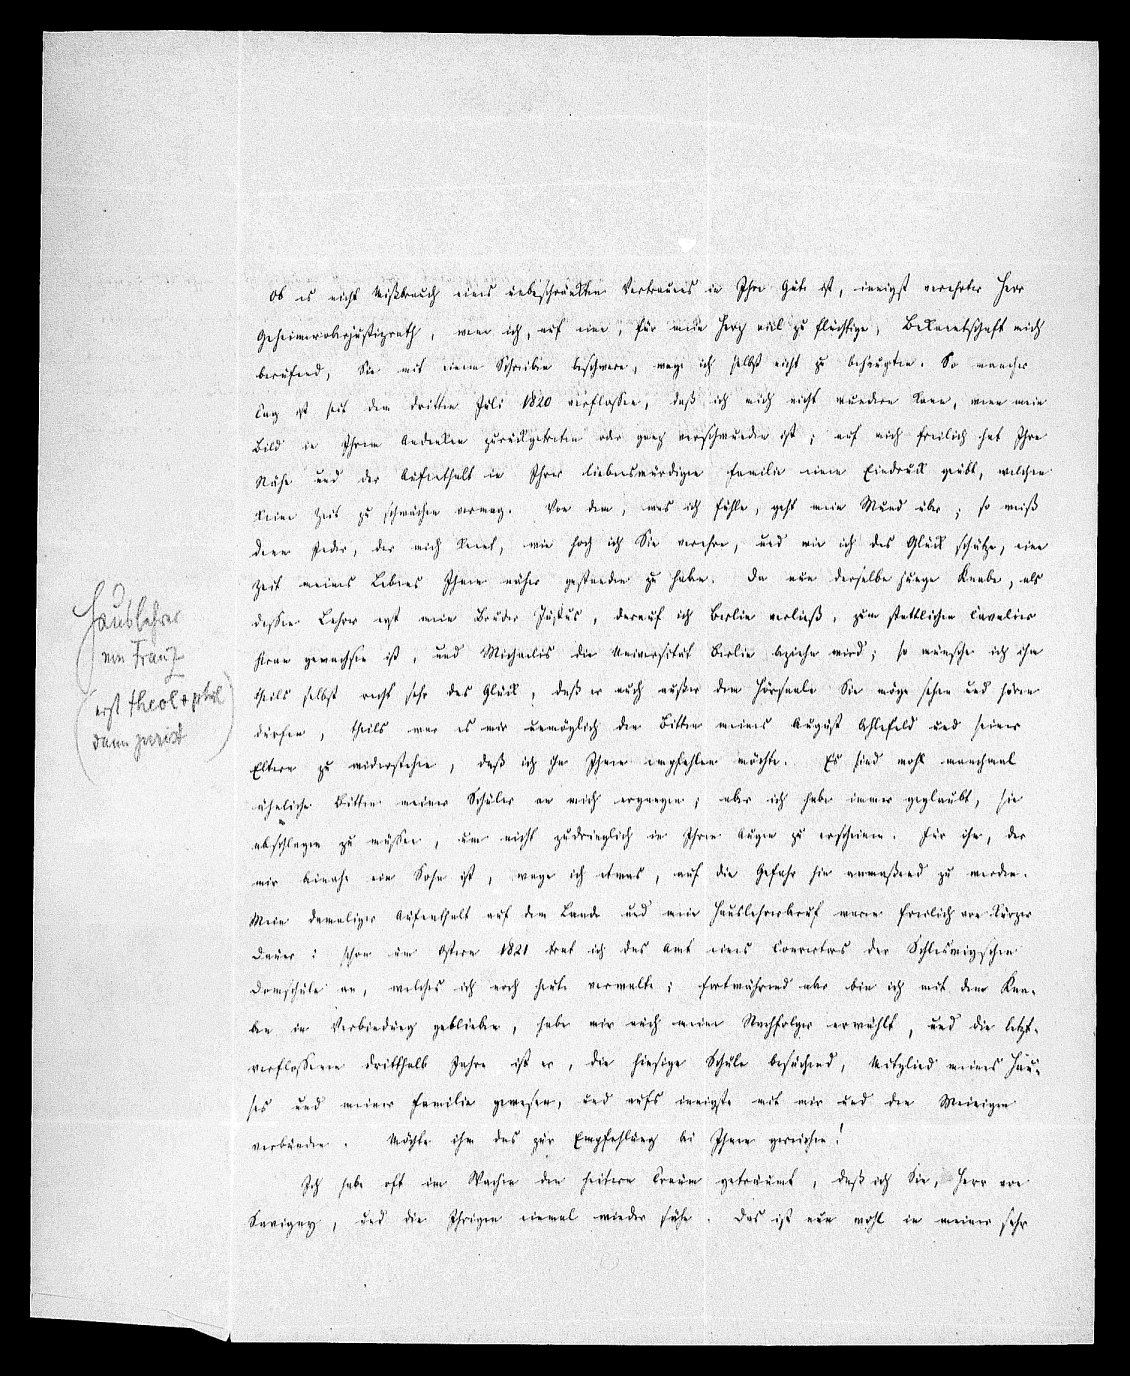 Ob es nicht Mißbrauch eines unbeschränkten Vertrauens in Ihre Güte ist, innigst verehrter Herr
Geheimeroberjustizrath, wenn ich, auf eine, für mein Herz viel zu flüchtige, Bekanntschaft mich
berufend, Sie mit einem Schreiben beschwere, wage ich selbst nicht zu behaupten. So mancher
Tag ist seit dem dritten Juli 1820 verflossen, daß ich mich nicht wundern kann, wenn mein
Bild in Ihrem Andenken zurückgetreten oder ganz verschwunden ist; auf mich freilich hat Ihre
Nähe und der Aufenthalt in Ihrer liebenswürdigen Familie einen Eindruck geübt, welchen
keine Zeit zu schwächen vermag. Von dem, was ich fühle, geht mein Mund über; so weiß
denn Jeder, der mich kennt, wie hoch ich Sie verehre, und wie ich das Glück schätze, eine
Zeit meines Lebens Ihnen näher gestanden zu haben. Da nun derselbe junge Knabe, als
dessen Lehrer erst mein Bruder Justus, darauf ich Berlin verließ, zum stattlichen Cavalier
heran gewachsen ist, und Michaelis die Universität Berlin beziehen wird; so wünsche ich ihm
theils selbst recht sehr das Glück, daß er auch außer dem Hörsaale Sie möge sehen und hören
dürfen, theils war es mir unmöglich den Bitten meines August Ahlefeld und seiner
Eltern zu widerstehen, daß ich ihn Ihnen empfehlen möchte. Es sind wohl manchmal
ähnliche Bitten meiner Schüler an mich ergangen; aber ich habe immer geglaubt, sie
abschlagen zu müssen, um nicht zudringlich in Ihren Augen zu erscheinen. Für ihn, der
mir beinahe ein Sohn ist, wage ich etwas, auf die Gefahr hin anmaßend zu werden.
Mein damaliger Aufenthalt auf dem Lande und mein Hauslehrerberuf waren freilich von kurzer
Dauer: schon um Ostern 1821 trat ich das Amt eines Conrectors der Schleswigschen
Domschule an, welches ich noch heute verwalte; fortwährend aber bin ich mit dem Kna-
ben in Verbindung geblieben, habe mir auch meinen Nachfolger erwählt, und die letzt-
verflossenen dritthalb Jahre ist er, die hiesige Schule besuchend, Mitglied meines Hau-
ses und meiner Familie gewesen, und aufs innigste mit mir und den Meinigen
verbunden. Möchte ihm das zur Empfehlung bei Ihnen gereichen!
Ich habe oft im Wachen den heitern Traum geträumt, daß ich Sie, Herr von
Savigny, und die Ihrigen einmal wieder sähe. Das ist nun wohl in meiner sehr
Hauslehrer
von Franz
(erst theol + phil
dann jurist)